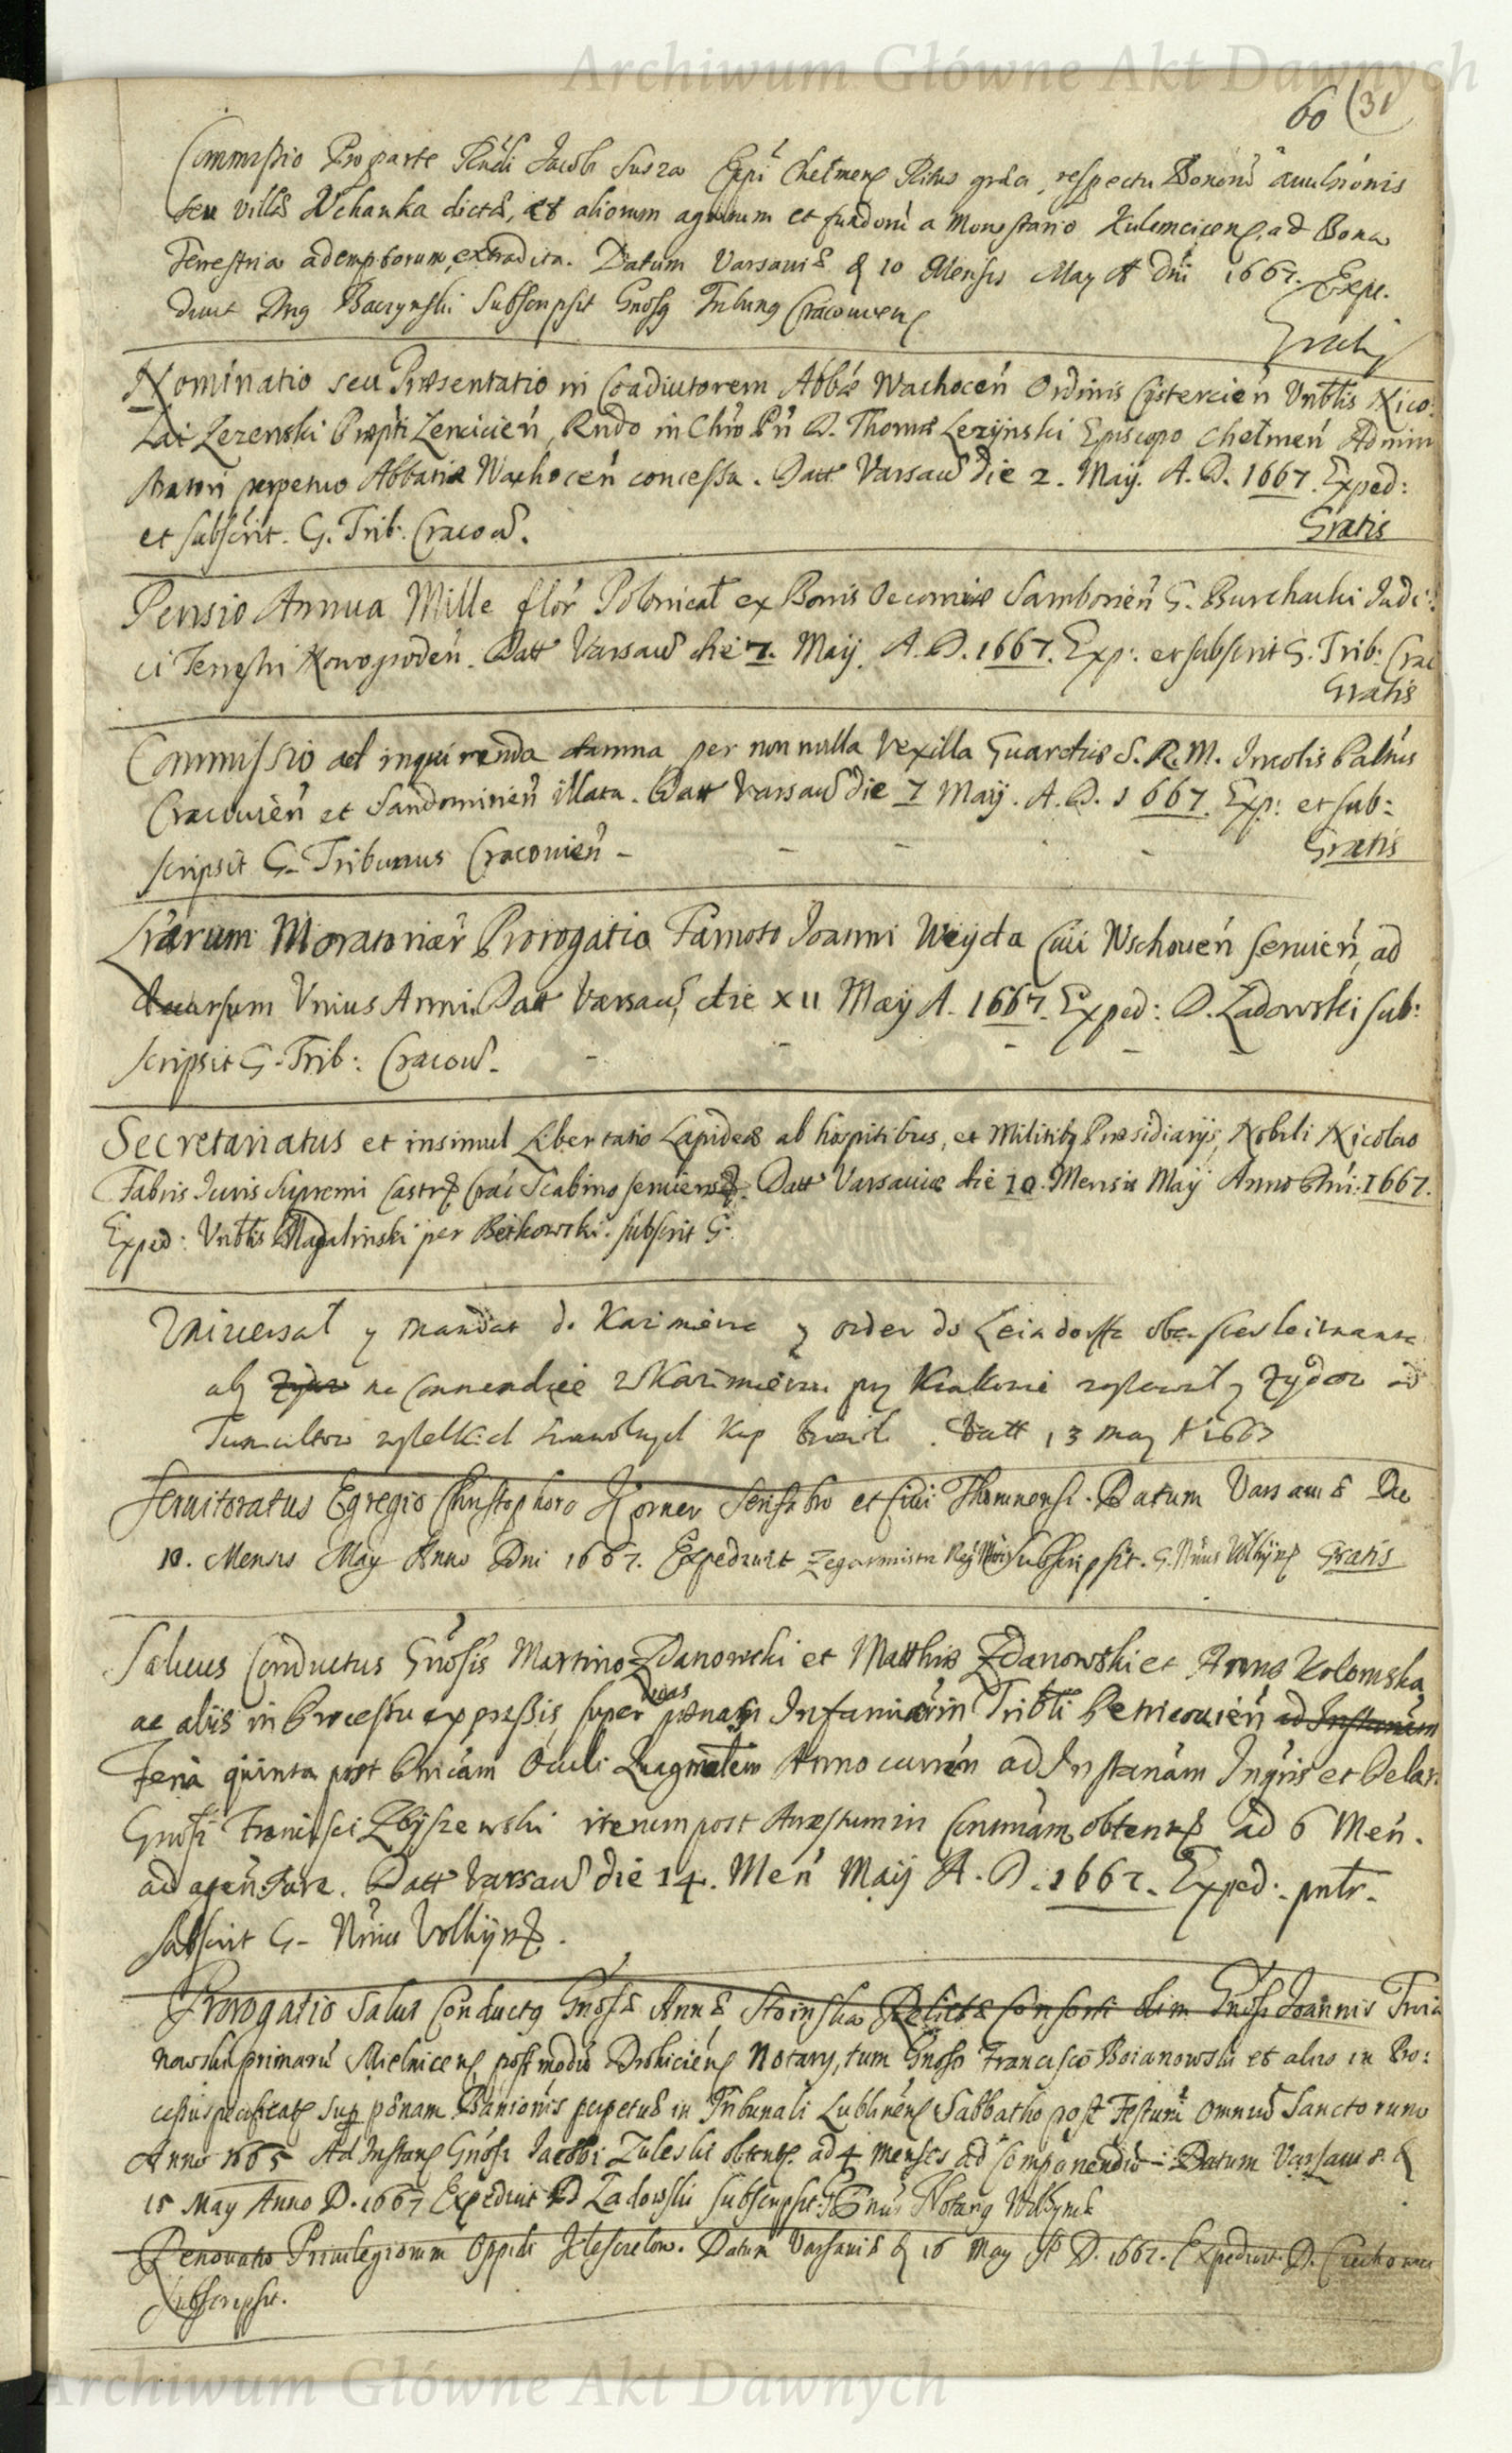 Archiwum Główne Akt Dawnych
60 (31
Commissio Pro parte Rñdi Jacobi Susza Eppi Chełmens Ritus græci, respectu Bonorũ avulsionis
seu villæ Uchanka dictæ, et aliorum agrorum et fundorũ a Monastario ad Bona
Terrestria ademptorum, extradita. Datum Varsaviæ d 10 Mensis May A Dni 1667. Expe.
divit Baczynski Subscripsit Gnosus Tribunus Cracoviens
Gratis
Nominatio seu Præsentatio in Coadiutorem Abbæ Wachocen Ordinis Cistercien Vnblis Nico:
lai Lezenski Præpti Lencicien, Rndo in Chro Pñ D. Thomæ Lezynski Episcopo Chełmen Admini
stratori perpetuo Abbatiæ Wachocen concessa. Datt Varsaw die 2. Maij. A. D. 1667. Exped:
et subscrit. G. Trib: Cracow.
Gratis
Pensio Annua Mille flor Polonical ex Bonis Oeconomiæ Samborien G. Burchacki Judi:
ci Terrestri Nowogroden. Datt Varsaw die 7. Maij. A. D. 1667. Exp: et subscrit G. Trib: Crac
Gratis
Commissio ad inquirenda damna per non nulla Vexilla Guardiæ S. R. M. Incolis Palnus
Cracovien et Sandomirien illata. Datt Varsaw die 7 Maij. A. D. 1667. Exp: et sub:
scripsit G. Tribunus Cracovien -
Gratis
Lrarum Moratoriar Prorogatio Famoso Joanni Weyda Civi Wschoven servien, ad
decursum Vnius Anni. Datt Varsaw die XII Maij A. 1667. Exped: D. Zadowski sub:
scripsit G. Trib: Cracow.
Secretariatus et insimul Libertatio Lapideæ ab hospitibus, et Militibus Præsidiarijs, Nobili Nicolao
Fabris Juris Supremi Castri Scabino serviens. Datt Varsaviæ die 10. Mensis Maij Anno Dni: 1667.
Exped: Vnblis Madalinski per Betkowski. subscrit G.
Universał y mandat do Kazimierza y order do obersterleitnanta
aby na Commendzie w Kazimierzu przy Krakowie Zydow od
Tumultow Datt 13 may A 1667
Servitoratus Egregio Christophoro Korner et Civi Thorunensi. Datum Varsaviæ Die
10. Mensis May Anno Dni 1667. Expedivit Zegarmistrz Subscripsit. G. Nrius Volhyns Gratis
Salvus Conductus Gnosis Martino Zdanowski et Matthiæ Zdanowski et Annæ Kolomska
ac aliis in Processu expressis super duas pœnas Infamiæ in Tribli Petricovien ad Instanam
Feria quinta post Dnicam Oculi Anno curren ad Instanam Ingris et Delat.
Gnosi Francisci Zbyszewski iterum post Arrestum in obtents ad 6 Men.
ad agen Jure. Datt Varsaw die 14. Men Maij A. D. 1667. Exped: pntr.
subscrit G. Nrius Volhijns.
Prorogatio Salvi Conductus Gnosæ Annæ Stoinska Relictæ Consorti olim Gnosi Joannis Twia
nowski primariũ Mielnicens, postmodũ Drohiciens Notary, tum Gnoso Francisco Boianowski et alio in Pro:
cessu specificatis sup pœnam Banionis perpetuæ in Tribunali Lublinens Sabbatho post Festum omniũ Sanctorum
Anno 1665 Ad Instans Gnosi Jacobi Zuleski obtents. ad 4 menses ad Componendũ. Datum Varsaviæ d
15 May Anno D. 1667 Expedivit D Zadowski Subscripsit. Gnus Notarius Volhyniæ
Renovatio Privilegiorum Oppidi. Datum Varsaviæ d 16 May A D. 1667. Expedivit. D.
Subscripsit.
Archiwum Główne Akt Dawnych